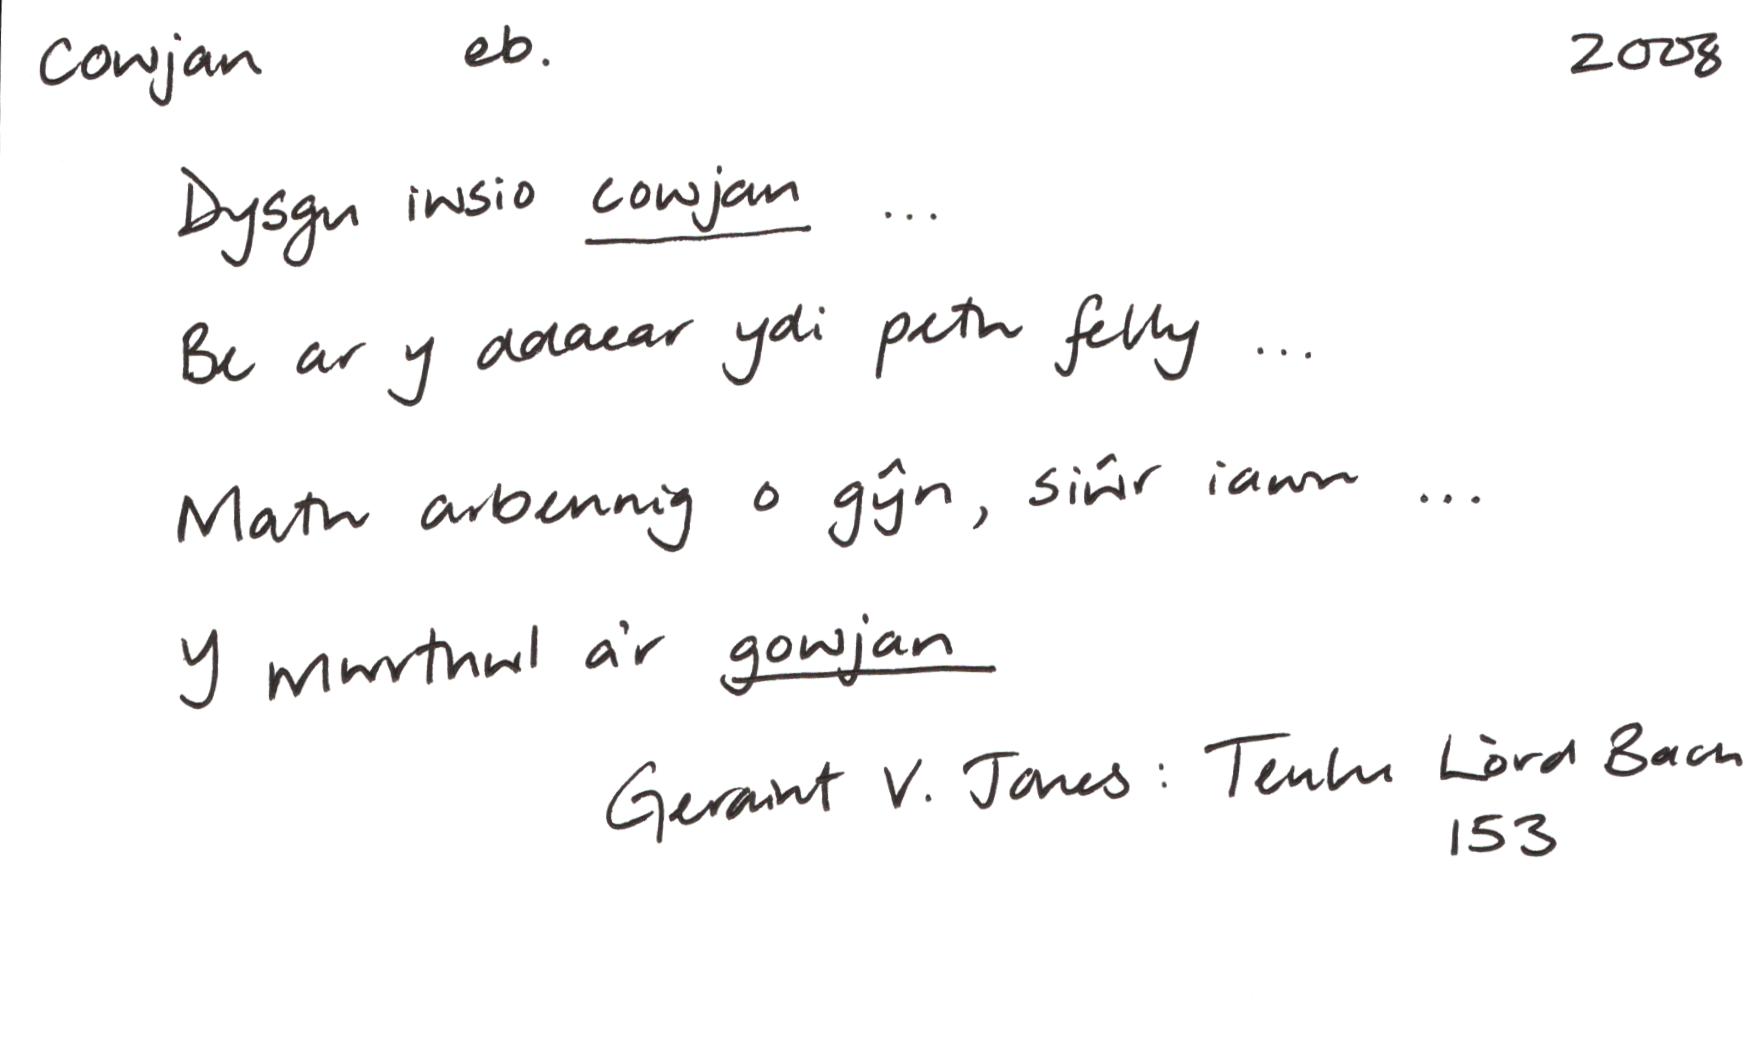 cowjan eb. 2008
Dysgu iwsio cowjan ...
Be ar y ddaear ydi peth felly ...
Math arbennig o gŷn, siŵr iawn ...
Y mwrthwl a'r gowjan
Geraint V. Jones: Teulu Lòrd Bach
153